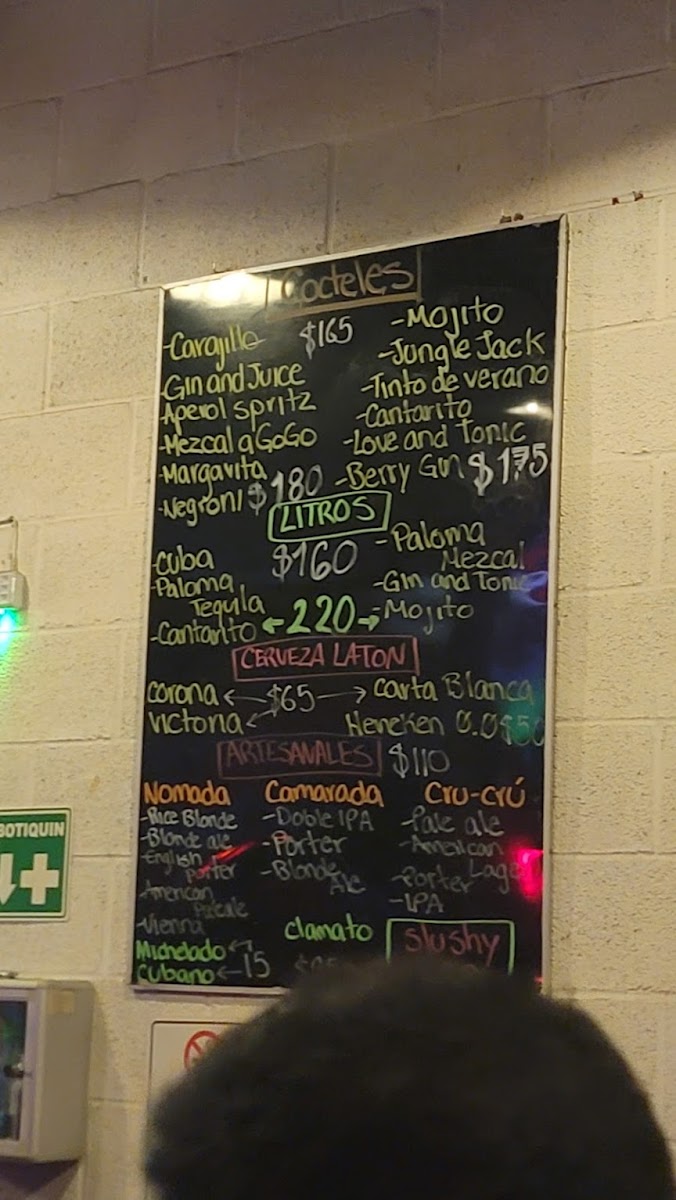 Cocteles
-Carajillo $165
-Gin and Juice
-Aperol spritz
-Mezcal a GoGo
-Margarita
-Negroni $180
-Mojito
-Jungle Jack
-Tinto de verano
-Cantarito
-Love and Tonic
-Berry Gin $175
LITROS
-Cuba $160
-Paloma
Tequila
-Cantarito ←220→
-Paloma
Mezcal
-Gin and Tonic
-Mojito
CERVEZA LATON
corona ←$65→ carta Blanca
victoria ← Heineken 0.0 $50
ARTESANALES $110
Nomada
-Rice Blonde
-Blonde ale
-English
Porter
-American
Pale ale
-Vienna
Camarada
-Doble IPA
-Porter
-Blonde
Ale
Cru-crú
-Pale ale
-American
Lager
-Porter
-IPA
Michelado ←
Cubano ←15
clamato
slushy
BOTIQUIN